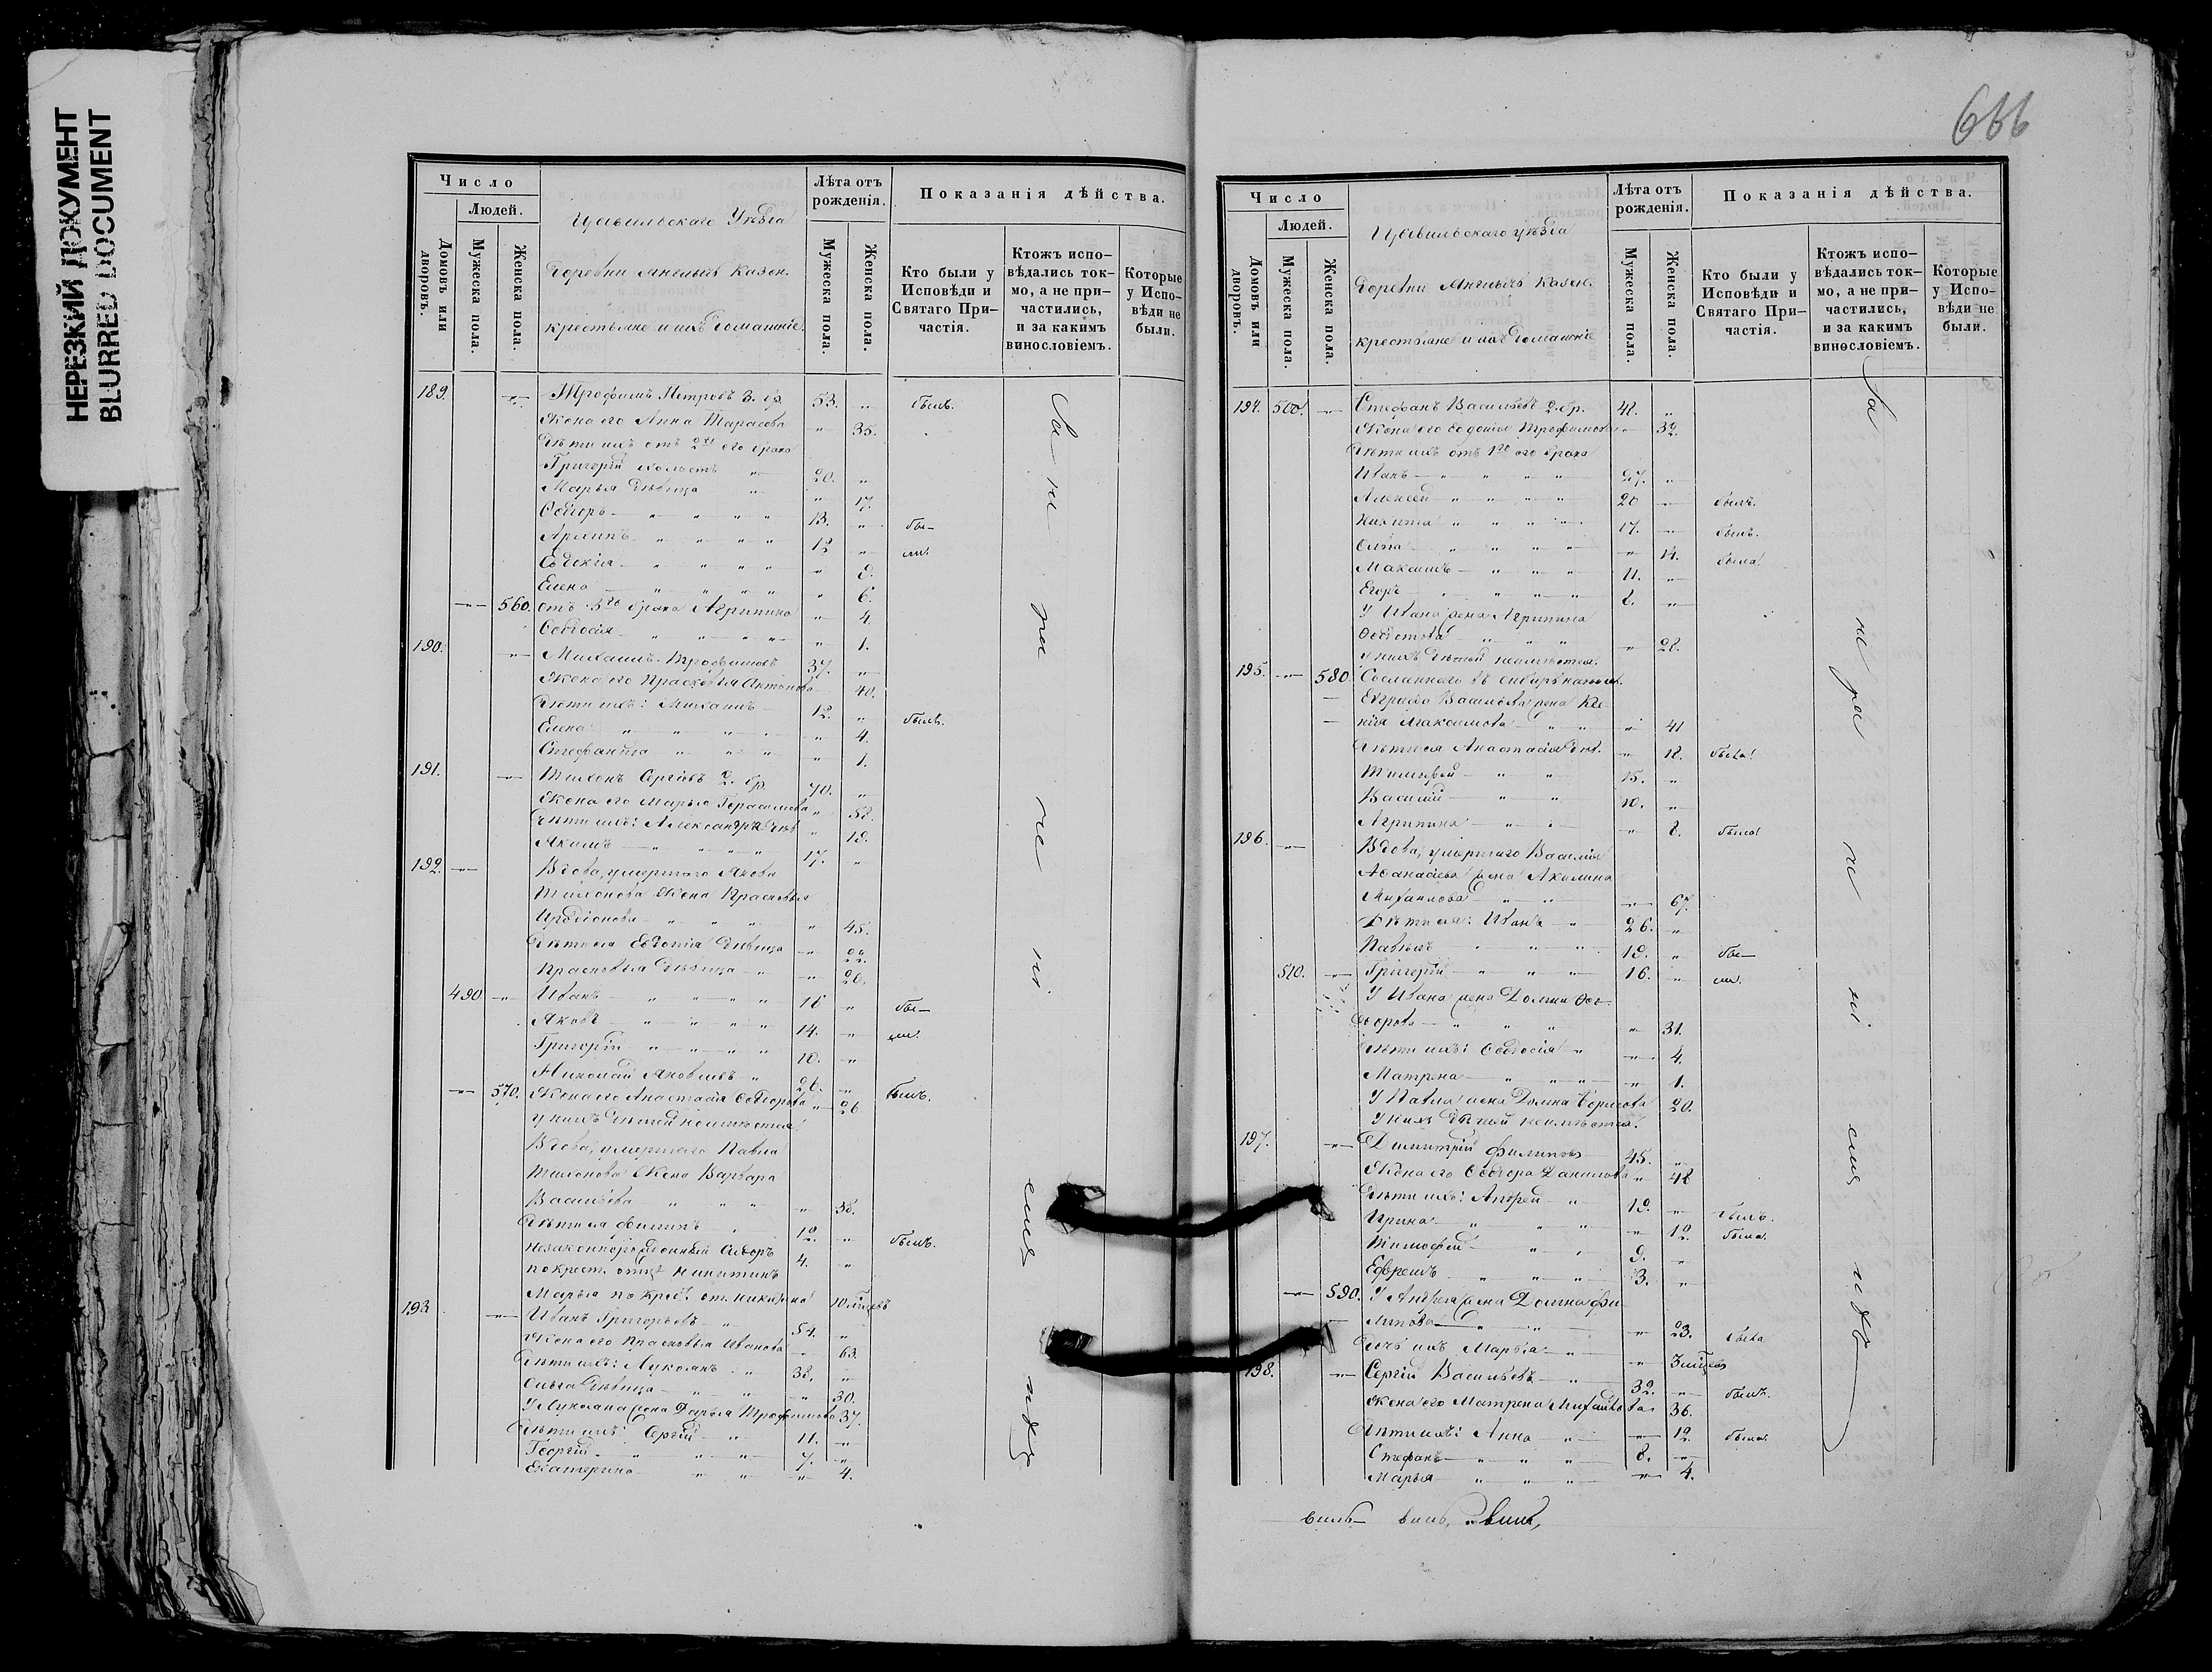 НЕРЕЗКИЙ ДОКУМЕНТ
BLURRED DOCUMENT
Число
Людей.
Домовъ или дворовъ.
Мужеска пола.
Женска пола.
Цивильскаго Уѣзда
Деревни казен.
крестьяне и ихъ домашніе.
Лѣта отъ рожденія.
Мужеска пола.
Женска пола.
Показанія дѣйства.
Кто были у Исповѣди и Святаго Причастія.
Ктожъ исповѣдались токмо, а не причастились, и за какимъ винословіемъ.
Которые у Исповѣди не были.
189. Трофимъ Петровъ 3. бр. 53. былъ.
Жена его Анна Тарасова 35.
Дѣти ихъ отъ 2го его брака
Григорій 20.
Марья дѣвица 17.
Ѳедоръ 13. бы-
Архипъ 12 ли.
Евдокія 9.
Елена 6.
560. отъ 3го брака Агрипина 4.
Ѳедосія 1.
190. Михаилъ Трофимовъ 37.
Жена его Прасковья Антонова 40.
Дѣти ихъ: Михаилъ 12. былъ.
Елена 4.
Стефанида 1.
191. Тихонъ Сергіевъ 2. бр. 70.
Жена его Марья Герасимова 58.
Дѣти ихъ: Александра дѣв. 19.
Якимъ 17.
192. Вдова, умершаго Якова
Тихонова жена Прасковья
Иродіонова 45.
Дѣти ея Евдокія дѣвица 22.
Прасковья дѣвица 20.
490 Иванъ 18 бы-
Яковъ 14. ли.
Григорій 10.
Николай Яковлевъ 26. былъ.
570. Жена его Анастасія Ѳедорова 26
у нихъ дѣтей неимѣется.
Вдова, умершаго Павла
Тихонова жена Варвара
Васильева 38.
Дѣти ея Филипъ 12. былъ.
незаконнорожденный 4.
по крест. отцу Никитинъ
Марья по крест. от. 10 мѣсяцевъ
193 Иванъ Григорьевъ 54.
Жена его Прасковья Иванова 63.
Дѣти ихъ: Лукіанъ 38.
Ольга дѣвица 30.
У Лукіана жена Дарья Трофимова 37.
Дѣти ихъ: Сергій 11.
Георгій 7.
Екатерина 4.
За нерачениемся нѣтъ
666
Число
Людей.
Домовъ или дворовъ.
Мужеска пола.
Женска пола.
Цивильскаго уѣзда
Деревни казен.
крестьяне и ихъ домашніе
Лѣта отъ рожденія.
Мужеска пола.
Женска пола.
Показанія дѣйства.
Кто были у Исповѣди и Святаго Причастія.
Ктожъ исповѣдались токмо, а не причастились, и за какимъ винословіемъ.
Которые у Исповѣди не были.
194. 500. Стефанъ Васильевъ 2. бр. 48.
Жена его Трофимова 32.
Дѣти ихъ отъ 1го его брака
Иванъ 27.
Алексей 20 былъ.
Никита 17. былъ.
Ольга 14. была.
Максимъ 11.
Егоръ 8.
У Ивана жена Агрипина
28.
у нихъ дѣтей неимѣется.
195. 580. Сосланнаго въ сибирь
Васильева жена Ксе-
нія Максимова 41
Дѣти ея Анастасія дѣв. 18. была.
Тимофей 15.
Василій 10.
Агрипина 8. была.
196. Вдова, умершаго Василія
Аѳанасьева жена Акилина
Михайлова 67.
Дѣти ея: Иванъ 26.
Павелъ 19. бы-
510. Григорій 16. ли.
У Ивана жена Домна Ѳео-
дорова 31.
Дѣти ихъ: Ѳедосія 4.
Матрена 1.
У Павла жена Домна Борисова 20.
У нихъ дѣтей неимѣется.
197. Димитрій Филиповъ 45.
Жена его Ѳедора Данилова 48
Дѣти ихъ: Андрей 19. былъ.
Ирина 12. была.
Тимофей 9.
Ефремъ 3.
590. У Андрея жена Домна Фи-
липова 23. была
Дочь ихъ Марья 3 мѣсяц.
198. Сергій Васильевъ 39. былъ.
Жена его Матрена Михайлова 36.
Дѣти ихъ: Анна 12. была.
Стефанъ 8.
Марья 4.
За нерачениемся нѣтъ